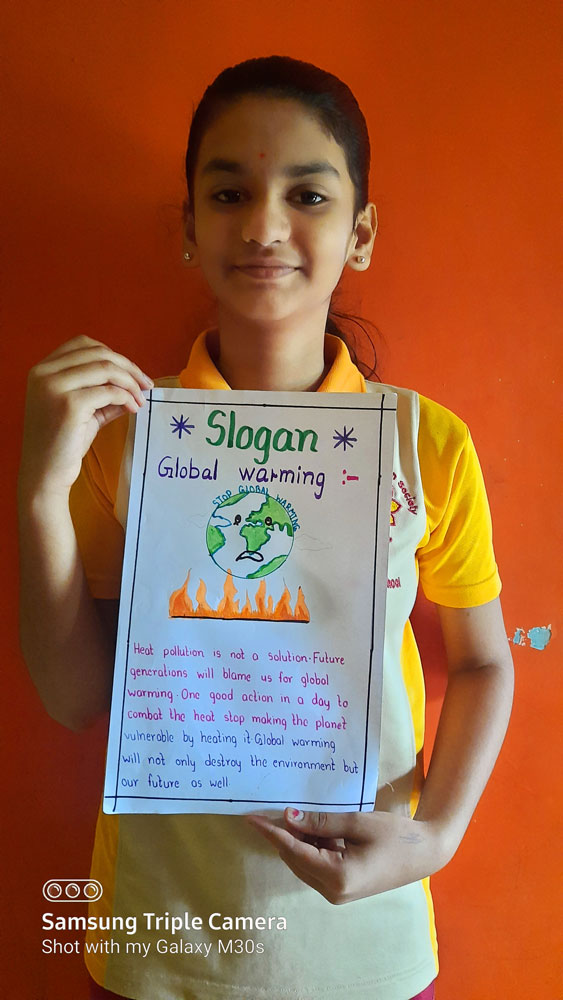 * Slogan *
Global warming :-
STOP GLOBAL WARMING
Heat pollution is not a solution. Future
generations will blame us for global
warming. One good action in a day to
combat the heat stop making the planet
vulnerable by heating it. Global warming
will not only destroy the environment but
our future as well.
society
Samsung Triple Camera
Shot with my Galaxy M30s